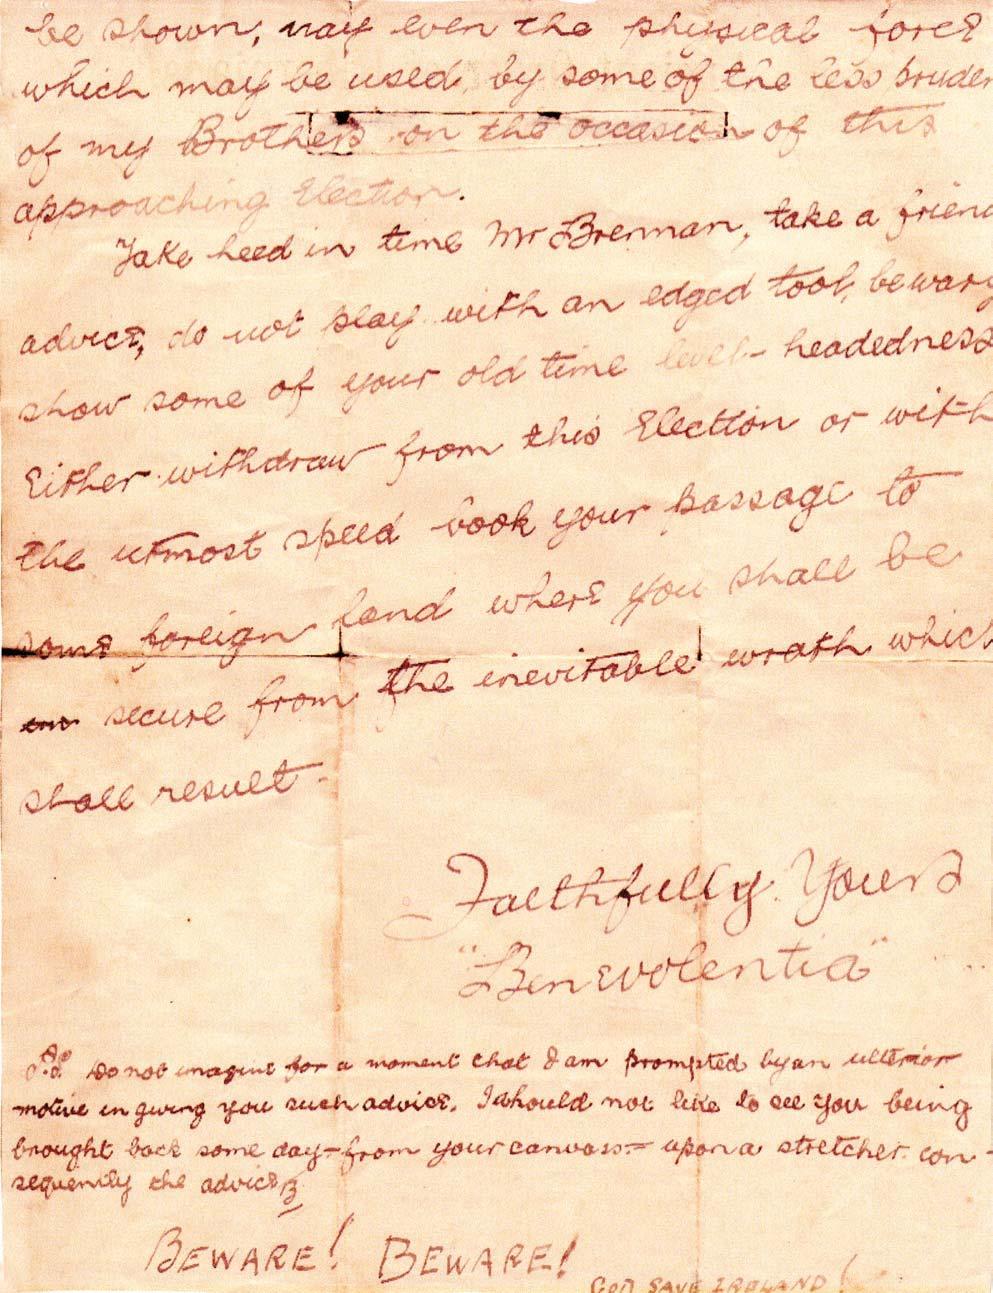 be shown, nay even the physical force
which may be used by some of the less pruden
of my Brothers on the occasion of this
approaching Election.
Take heed in time Mr Brennan, take a frien
advice, do not play with an edged tool, be wary
show some of your old time level-headedness
Either withdraw from this Election or with
the utmost speed book your passage to
some foreign land where you shall be
secure from the inevitable wrath which
shall result.
Faithfully Yours
"Benevolentia"
P.S. Do not imagine for a moment that I am prompted by an ulterior
motive in giving you such advice. I should not like to see you being
brought back some day - from your canvass - upon a stretcher. con-
sequently the advice B
BEWARE! BEWARE!
GOD SAVE IRELAND!